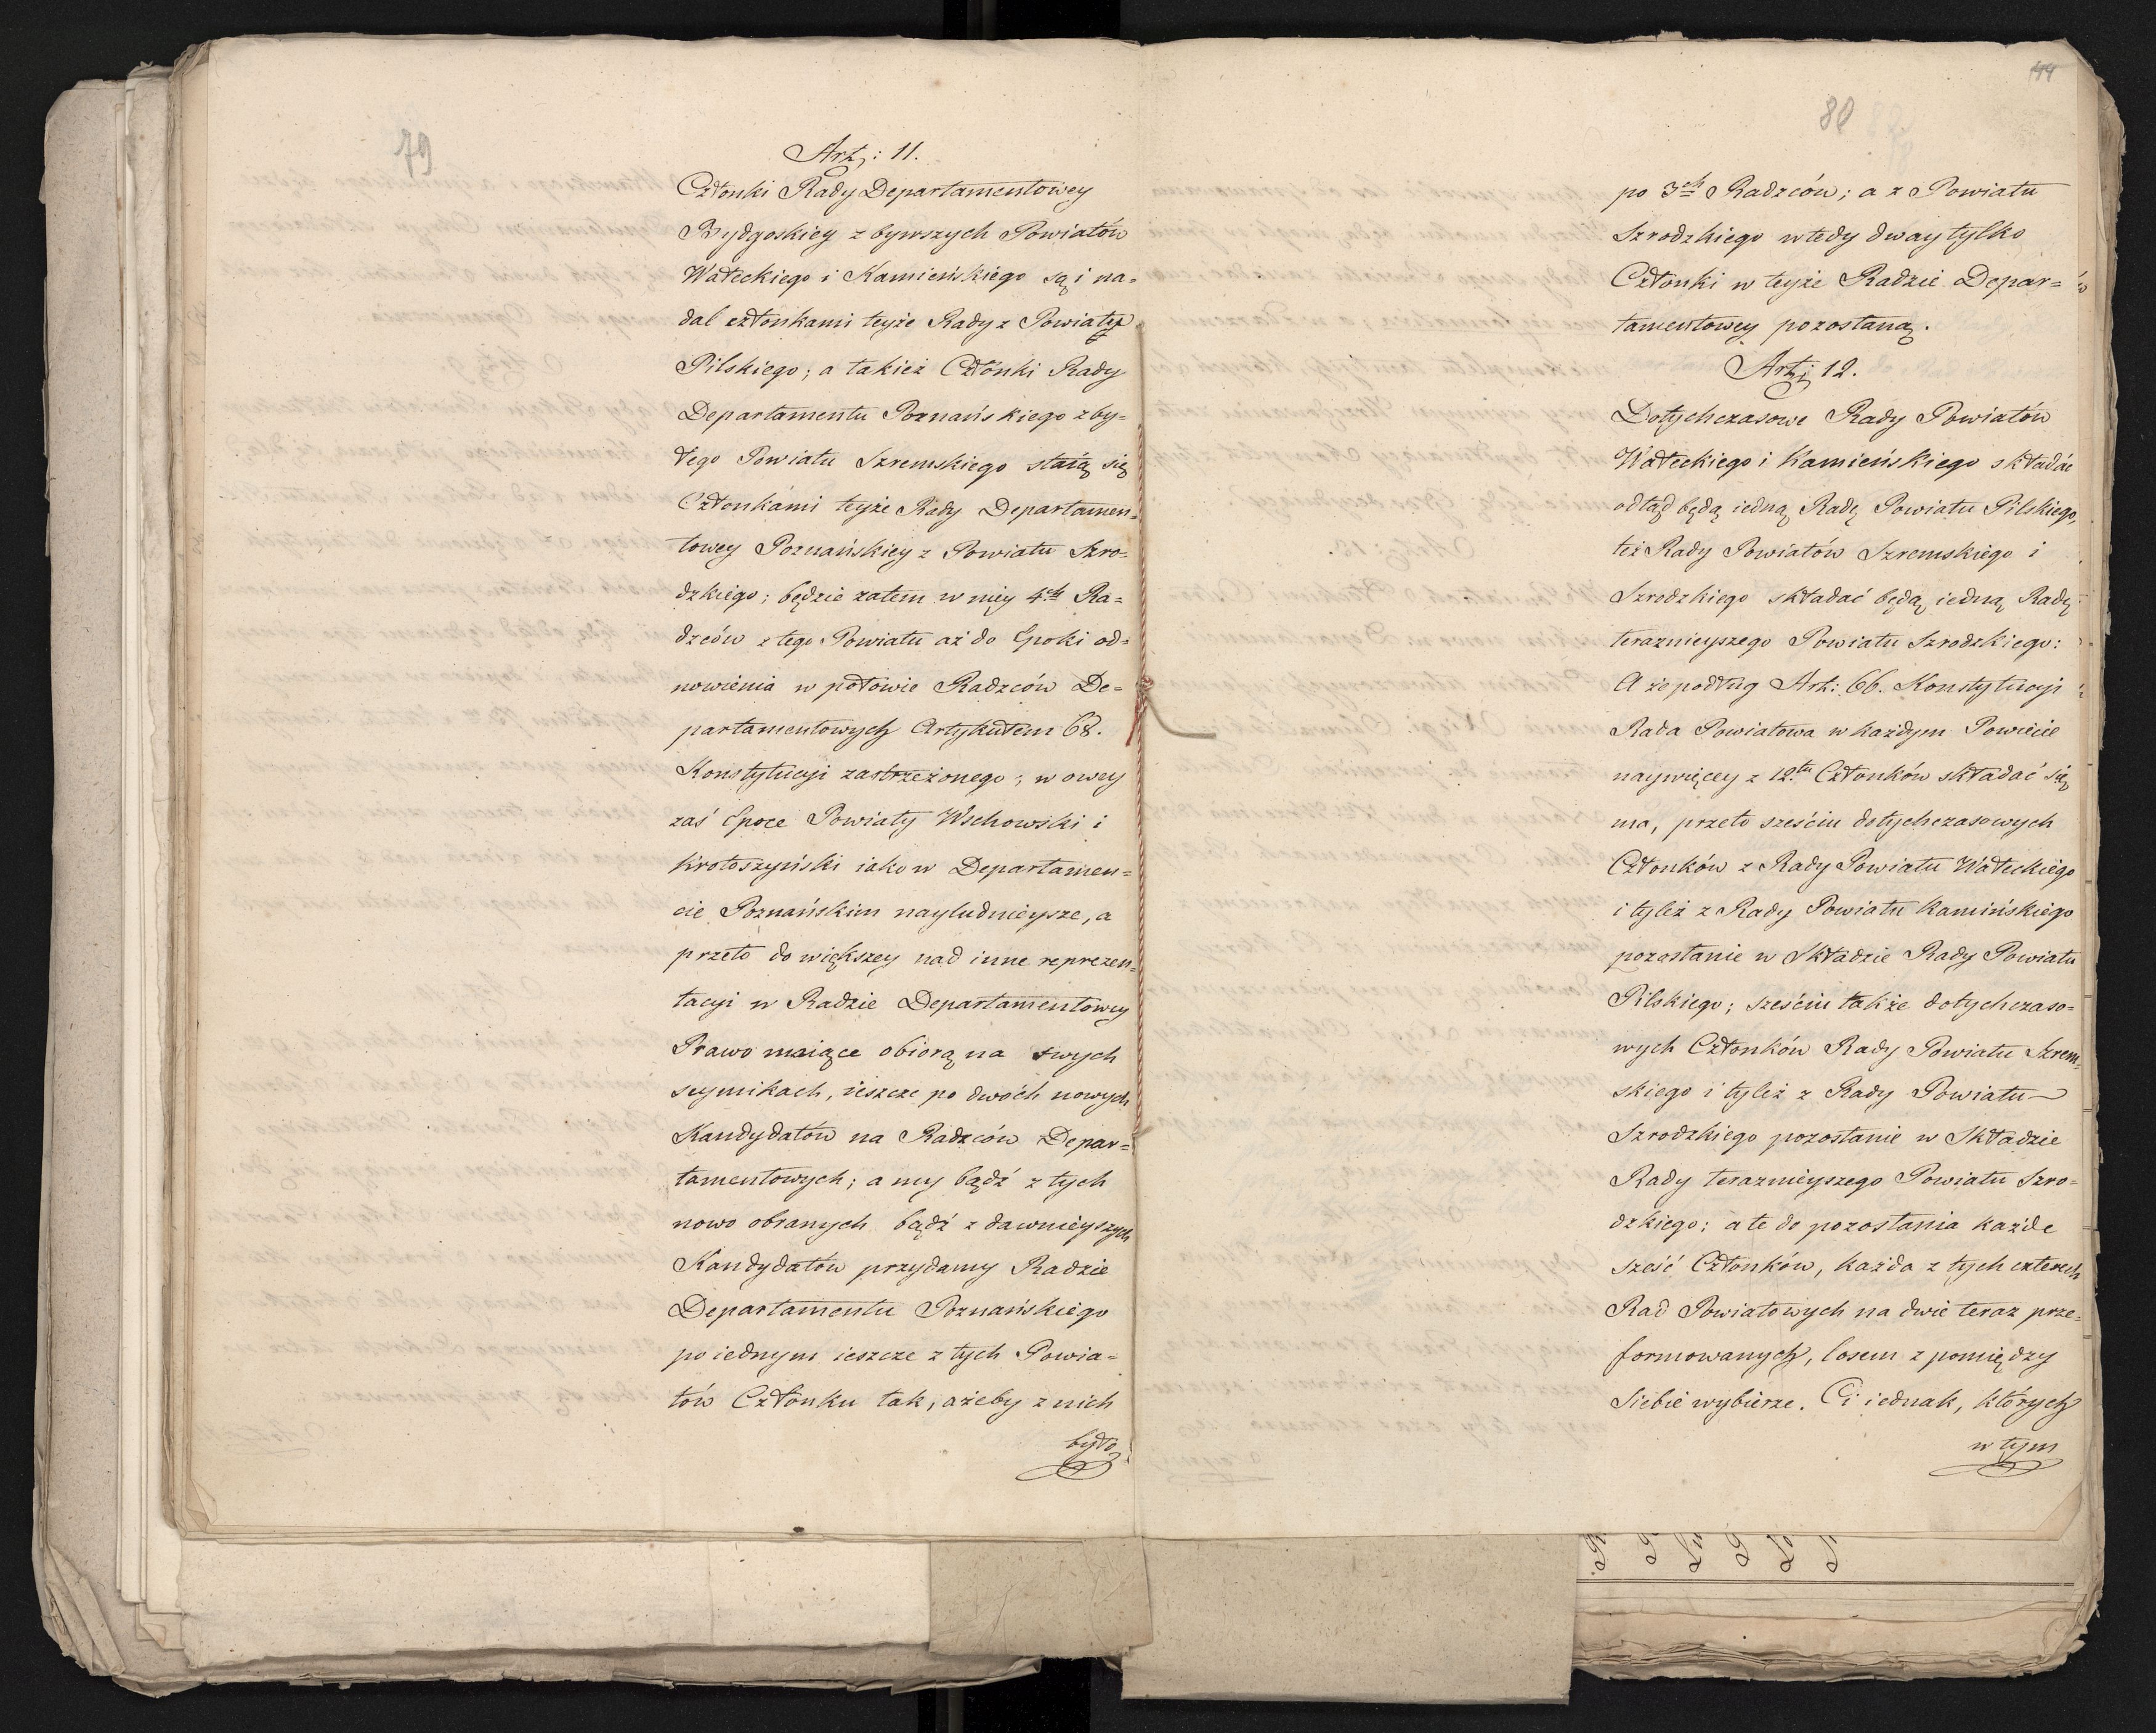 79
Art: 11.
Członki Rady Departamentowey
Bydgoskiey z bywszych Powiatów
Wałeckiego i Kamieńskiego są i na=
dal członkami teyże Rady z Powiatu
Pilskiego; a takież Członki Rady
Departamentu Poznańskiego z by=
łego Powiatu Szremskiego staią się
Członkami teyże Rady Departamen=
towey Poznańskiey z Powiatu Szro=
dzkiego; będzie zatem w niey 4ch Ra=
dzców z tego Powiatu aż do Epoki od=
nowienia w połowie Radzców De=
partamentowych Artykułem 68.
Konstytucyi zastrzeżonego; w owey
zaś Epoce Powiaty Wschowski i
Krotoszyński iako w Departamen=
cie Poznańskim nayludnieysze, a
przeto do większey nad inne reprezen=
tacyi w Radzie Departamentowey
Prawo maiące obiorą na swych
seymikach, ieszcze po dwóch nowych
Kandydatów na Radzców Depar=
tamentowych; a my bądź z tych
nowo obranych bądź z dawnieyszych
Kandydatów przydamy Radzie
Departamentu Poznańskiego
po iednym ieszcze z tych Powia=
tów Członku tak, ażeby z nich
było
44
80
po 3ch Radzców; a z Powiatu
Szrodzkiego wtedy dway tylko
Członki w teyże Radzie Depar=
tamentowey pozostaną.
Art: 12.
Dotychczasowe Rady Powiatów
Wałeckiego i Kamieńskiego składać
odtąd będą iedną Radę Powiatu Pilskiego,
też Rady Powiatów Szremskiego i
Szrodzkiego składać będą iedną Radę
teraznieyszego Powiatu Szrodzkiego:
A że podług Art: 66. Konstytucyi
Rada Powiatowa w każdym Powiecie
naywięcey z 12.tu Członków składać się
ma, przeto sześciu dotychczasowych
Członków z Rady Powiatu Wałeckiego
i tyleż z Rady Powiatu Kamińskiego
pozostanie w Składzie Rady Powiatu
Pilskiego; sześciu także dotychczaso=
wych Członków Rady Powiatu Szrem=
skiego i tyleż z Rady Powiatu
Szrodzkiego pozostanie w Składzie
Rady teraznieyszego Powiatu Szro=
dzkiego; a te do pozostania każde
sześć Członków, każda z tych czterech
Rad Powiatowych na dwie teraz prze=
formowanych, losem z pomiędzy
Siebie wybierze. Ci iednak, których
w tym